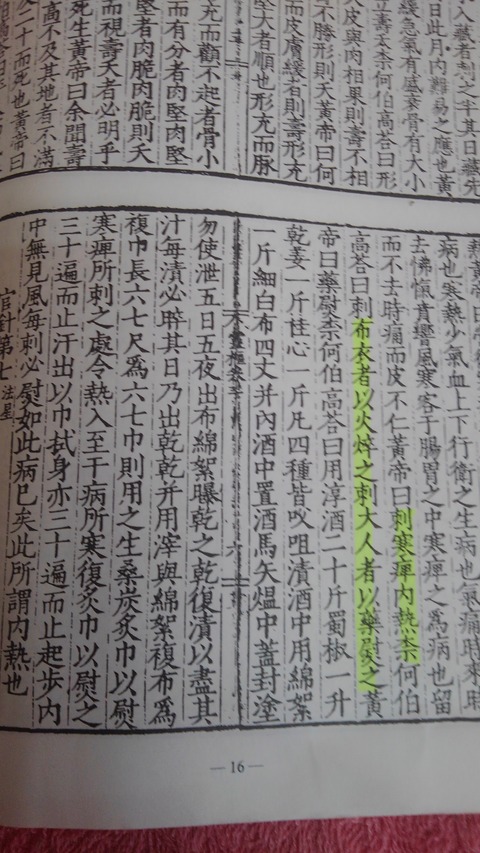 入藏者刺之半其日藏先
日此月内難易之應也黃
緩急氣有盛衰骨有大小
立壽夭奈何伯高荅曰形
皮與肉相果則壽不相
不勝形則夭黃帝曰何
而皮膚緩者則壽形充
堅大者順也形充而脉
充而顴不起者骨小
而有分者肉堅肉堅
堅者肉脆肉脆則夭
而視壽夭者必明乎
死生黃帝曰余聞壽
高不及其地者不滿
及二十而死也黃帝曰
熱黃帝曰
病也寒熱少氣血上下行衛之生病也氣痛時來時
去怫愾賁響風寒客于腸胃之中寒痺之為病也留
而不去時痛而皮不仁黃帝曰刺寒痺内熱柰何伯
高荅曰刺布衣者以火焠之刺大人者以藥熨之黃
帝曰藥熨柰何伯高荅曰用淳酒二十斤蜀椒一升
乾姜一斤桂心一斤凡四種皆㕮咀漬酒中用綿絮
一斤細白布四丈并内酒中置酒馬矢熅中蓋封塗
靈樞卷 六
勿使泄五日五夜出布綿絮曝乾之乾復漬以盡其
汁每漬必晬其日乃出乾乾并用滓與綿絮複布為
複巾長六七尺為六七巾則用之生桑炭炙巾以熨
寒痺所刺之處令熱入至于病所寒復炙巾以熨之
三十遍而止汗出以巾拭身亦三十遍而止起步内
中無見風每刺必熨如此病已矣此所謂内熱也
官針第七 法星
— 16 —